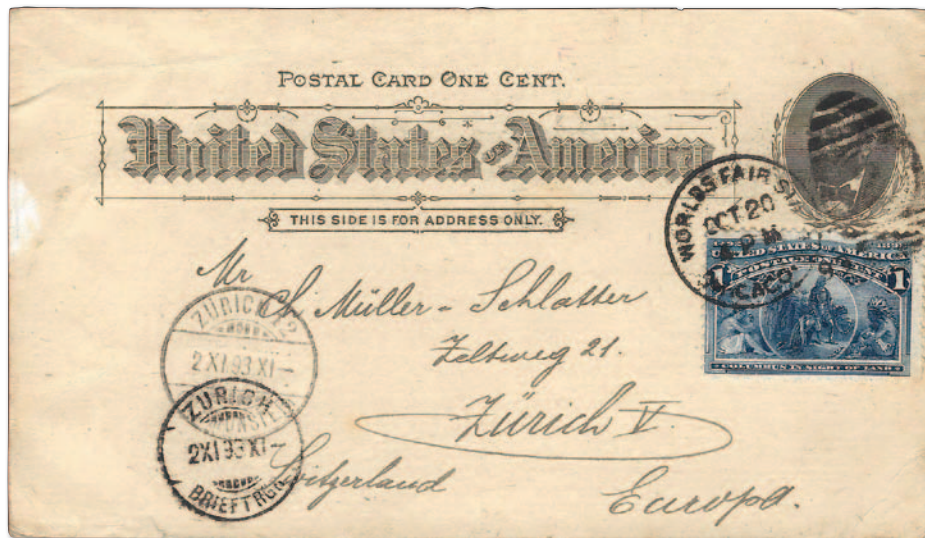 POSTAL CARD ONE CENT.
United States of America
THIS SIDE IS FOR ADDRESS ONLY.
WORLDS FAIR STA
OCT 20
PM
CHICAGO
1492 1892
UNITED STATES OF AMERICA
POSTAGE ONE CENT
1 1
COLUMBUS IN SIGHT OF LAND
Mr
Ch Müller - Schlatter
Zeltweg 21.
Zürich V.
Switzerland Europa.
ZÜRICH 12
2 XI 93 XI -
ZÜRICH
2 XI 93 XI -
BRIEFTRGG